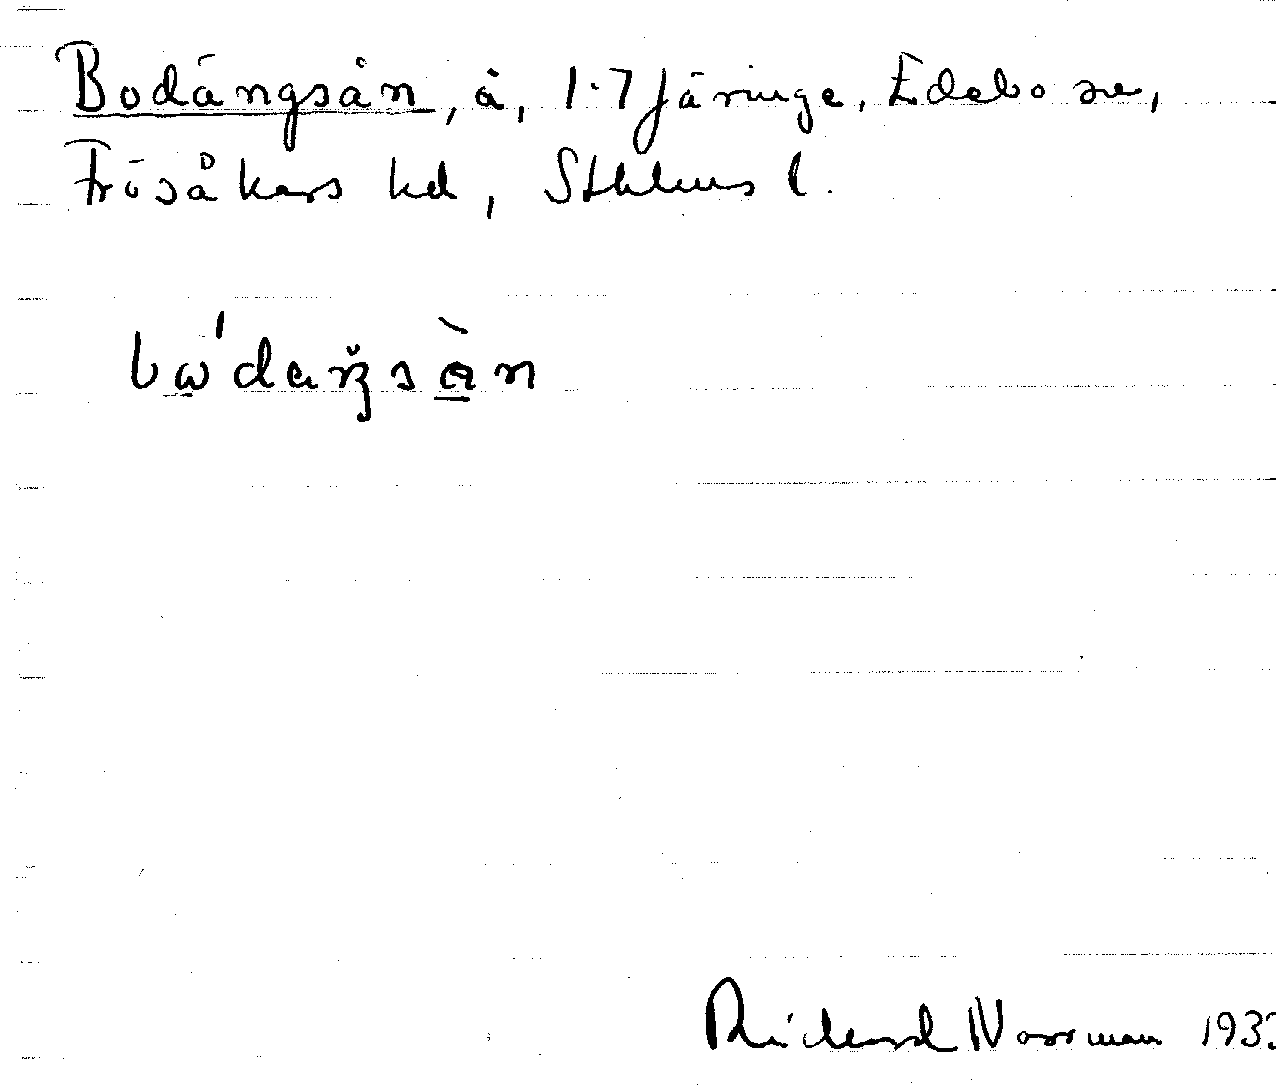 Bodängsån, å, 1·7 Järinge, Edebo sn,
Frösåkers hd, Sthlms l.
bώ̲daŋsà̲n
Rickard Norrman 193